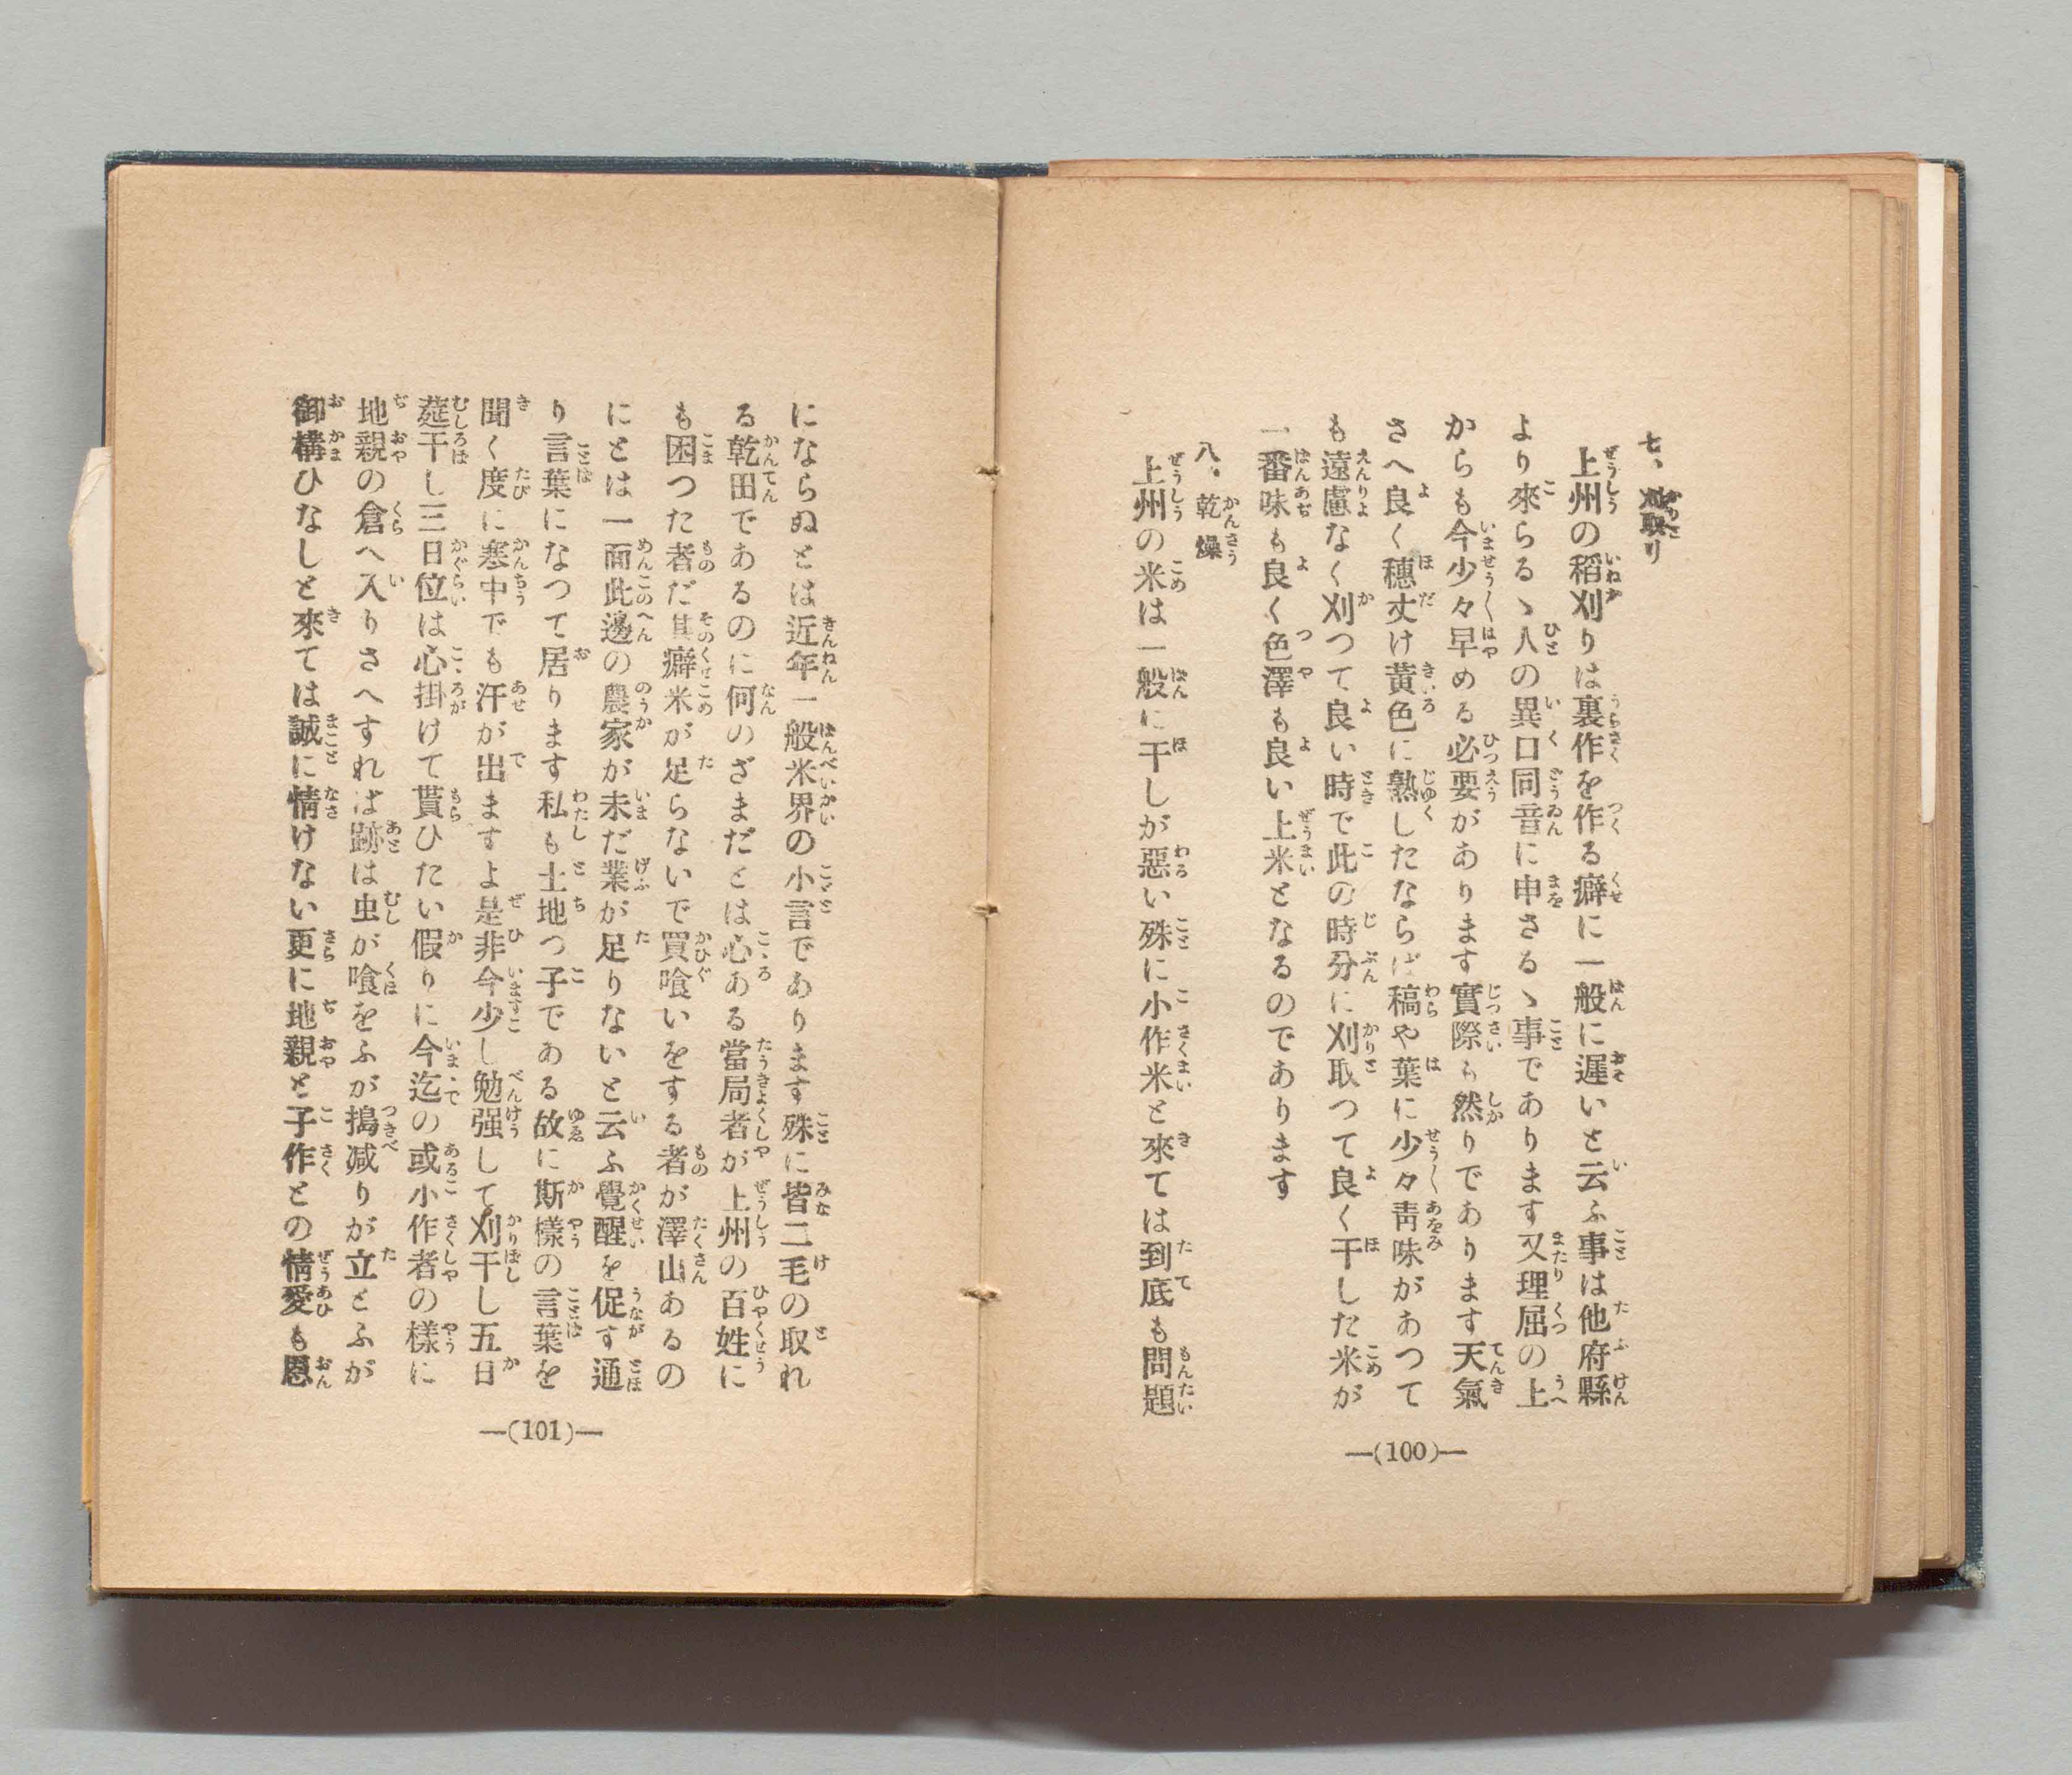 七、刈取り
上州の稻刈りは裏作を作る癖に一般に遲いと云ふ事は他府縣
より來らるゝ人の異口同音に申さるゝ事であります又理屈の上
からも今少々早める必要があります實際も然りであります天氣
さへ良く穗丈け黄色に熟したならば稿や葉に少々靑味があつて
も遠慮なく刈つて良い時で此の時分に刈取つて良く干した米が
一番味も良く色澤も良い上米となるのであります
八、乾燥
上州の米は一般に干しが惡い殊に小作米と來ては到底も問題
—(100)—
にならぬとは近年一般米界の小言であります殊に皆二毛の取れ
る乾田であるのに何のざまだとは心ある當局者が上州の百姓に
も困つた者だ其癖米が足らないで買喰いをする者が澤山あるの
にとは一面此邊の農家が未だ業が足りないと云ふ覺醒を促す通
り言葉になつて居ります私も土地つ子である故に斯樣の言葉を
聞く度に寒中でも汗が出ますよ是非今少し勉强して刈干し五日
莚干し三日位は心掛けて貰ひたい假りに今迄の或小作者の樣に
地親の倉へ入りさへすれば跡は虫が喰をふが搗減りが立とふが
御構ひなしと來ては誠に情けない更に地親と子作との情愛も恩
—(101)—